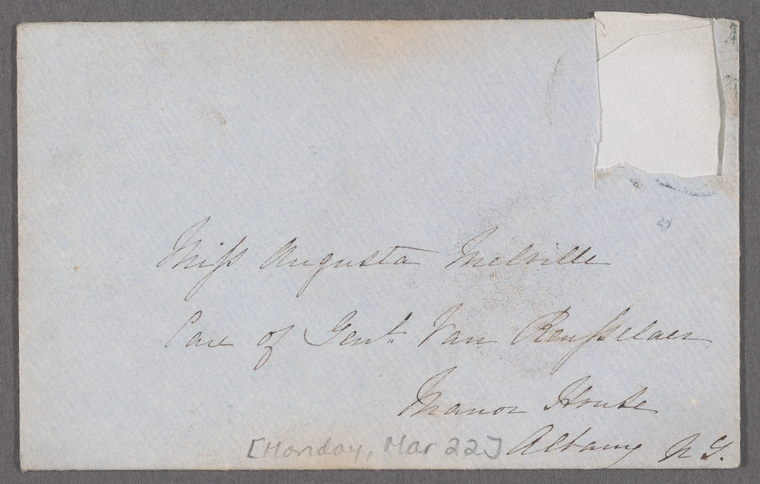 Miss Augusta Melville
Care of Genl. Van Rensselaer
Manor House
Albany N Y.
[Monday, Mar 22]